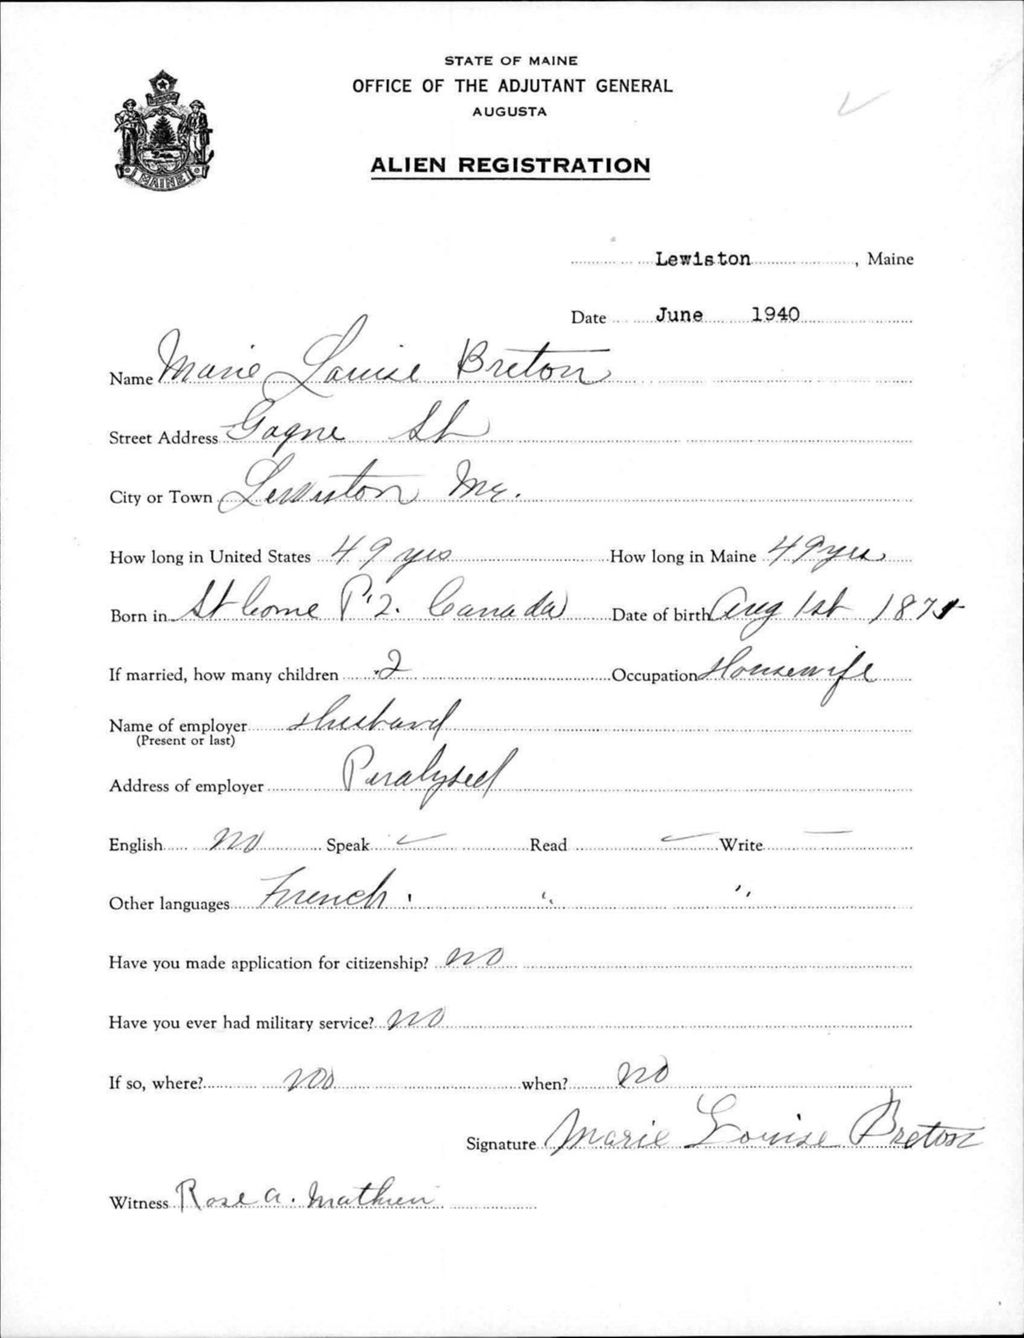 STATE OF MAINE
OFFICE OF THE ADJUTANT GENERAL
AUGUSTA
ALIEN REGISTRATION
MAINE
Lewiston, Maine
Date June 1940
Name Marie Louise Breton
Street Address Gagne St
City or Town Lewiston Me.
How long in United States 49 yrs How long in Maine 49 yrs
Born in St Come P.Q. Canada Date of birth Aug 1st
If married, how many children 2 Occupation Housewife
Name of employer Husband
(Present or last)
Address of employer Paralysed
English no Speak Read Write
Other languages French " "
Have you made application for citizenship? no
Have you ever had military service? no
If so, where? no when? no
Signature Marie Louise Breton
Witness Rose A. Mathieu